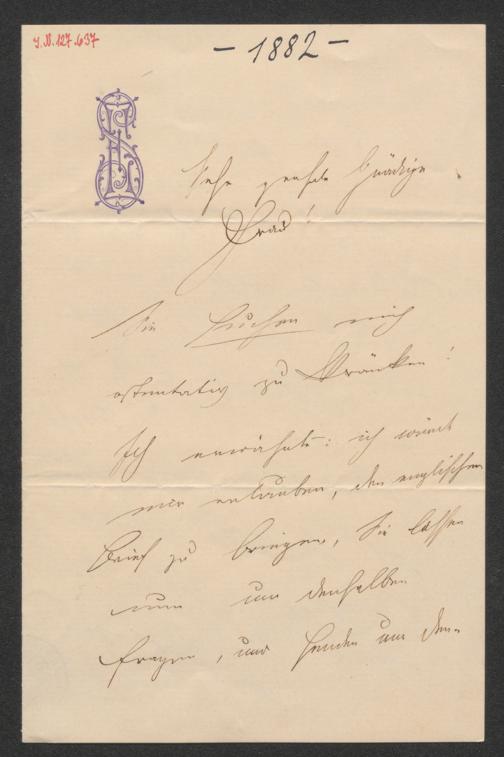 J.N. 127.637
– 1882 –
Sehr geehrte Gnädige
Frau!
Sie suchen mich
ostentativ zu kränken!
Ich erwähnte: ich würde
mir erlauben, den englischen
Brief zu bringen, Sie lassen
nun um denselben
fragen, und senden um den-